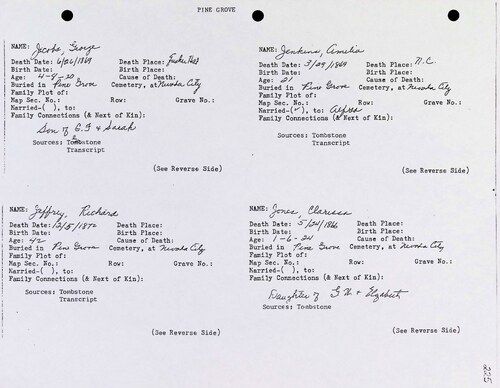 PINE GROVE
NAME: Jacobs, George
Death Date: 6/26/1869 Death Place:
Birth Date: Birth Place:
Age: 4-9-20 Cause of Death:
Buried in Pine Grove Cemetery, at Nevada City
Family Plot of:
Map Sec. No.: Row: Grave No.:
Married-( ), to:
Family Connections (& Next of Kin):
Son of & Sarah
Sources: Tombstone
Transcript
(See Reverse Side)
NAME: Jenkins, Amelia
Death Date: 3/29/1869 Death Place: N.C.
Birth Date: Birth Place:
Age: 21 Cause of Death:
Buried in Pine Grove Cemetery, at Nevada City
Family Plot of:
Map Sec. No.: Row: Grave No.:
Married-(✓), to: Alfred
Family Connections (& Next of Kin):
Sources: Tombstone
Transcript
(See Reverse Side)
NAME: Jeffrey, Richard
Death Date: 12/5/1872 Death Place:
Birth Date: Birth Place:
Age: 42 Cause of Death:
Buried in Pine Grove Cemetery, at Nevada City
Family Plot of:
Map Sec. No.: Row: Grave No.:
Married-( ), to:
Family Connections (& Next of Kin):
Sources: Tombstone
Transcript
(See Reverse Side)
NAME: Jones, Clarissa
Death Date: 5/24/1866 Death Place:
Birth Date: Birth Place:
Age: 1-6-24 Cause of Death:
Buried in Pine Grove Cemetery, at Nevada City
Family Plot of:
Map Sec. No.: Row: Grave No.:
Married-( ), to:
Family Connections (& Next of Kin):
Daughter of & Elizabeth
Sources: Tombstone
Transcript
(See Reverse Side)